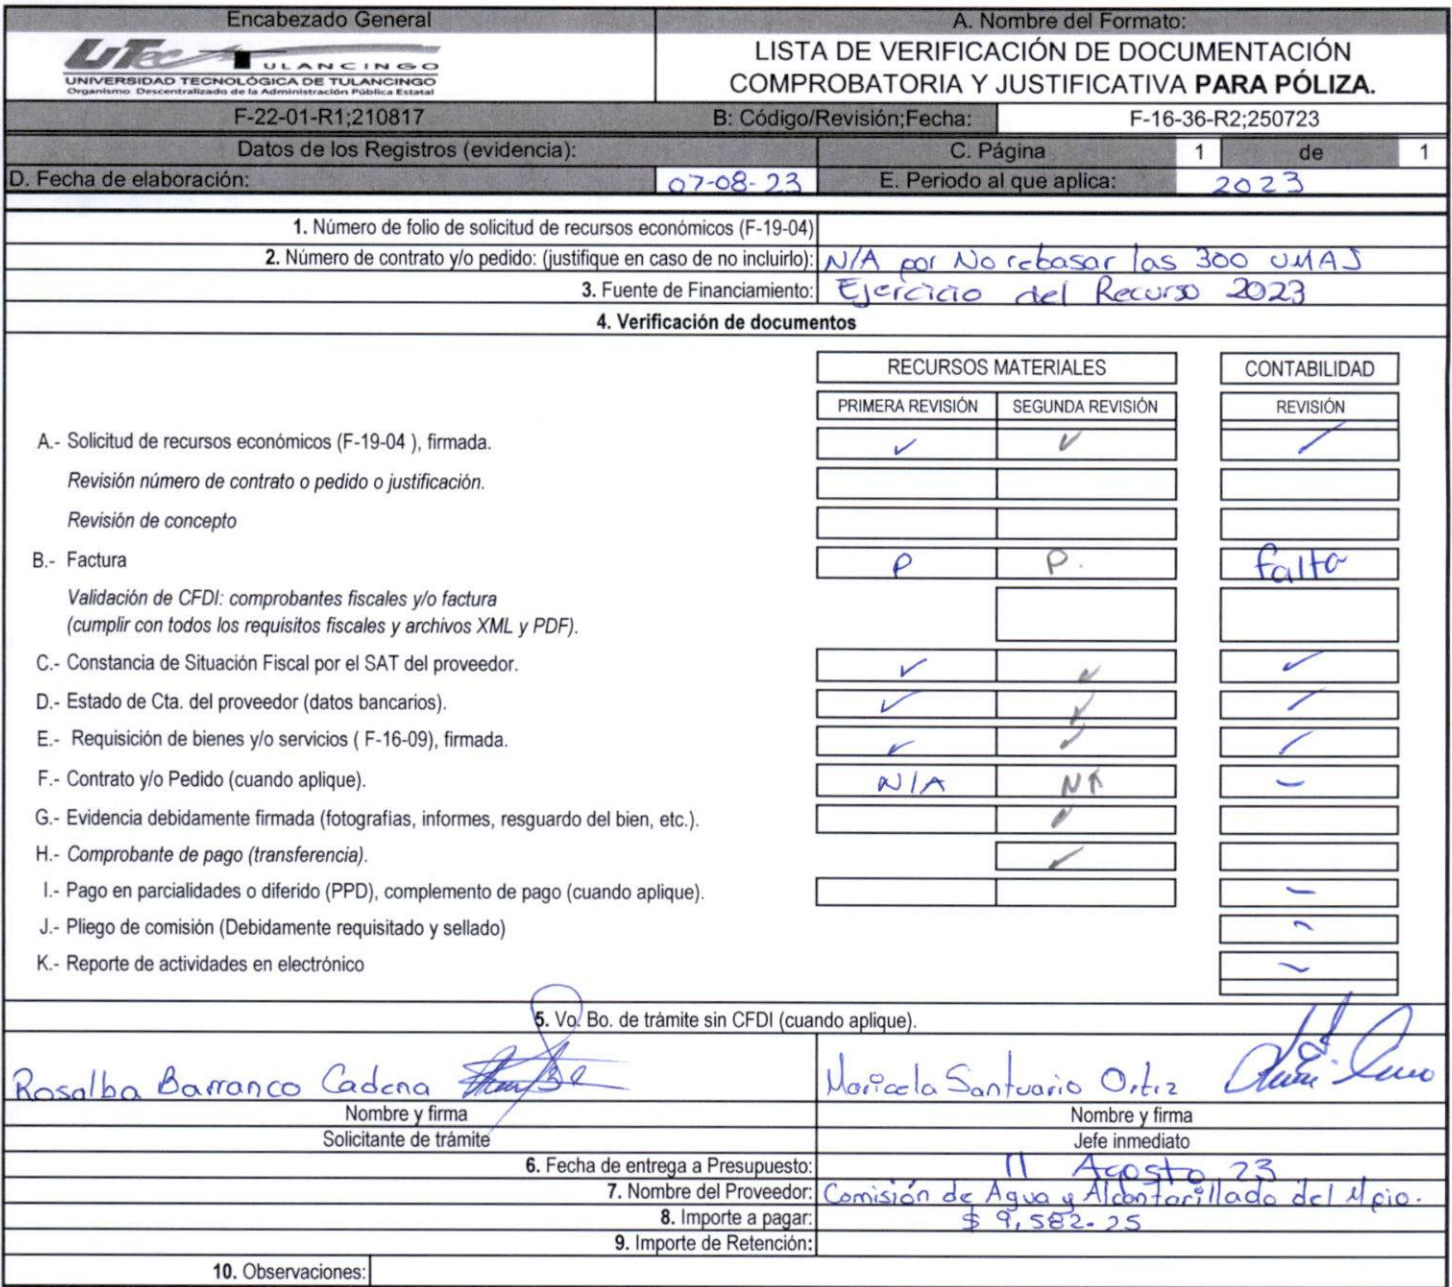 Encabezado General
A. Nombre del Formato:
UTec TULANCINGO
UNIVERSIDAD TECNOLÓGICA DE TULANCINGO
Organismo Descentralizado de la Administración Pública Estatal
LISTA DE VERIFICACIÓN DE DOCUMENTACIÓN
COMPROBATORIA Y JUSTIFICATIVA PARA PÓLIZA.
F-22-01-R1;210817 B: Código/Revisión;Fecha: F-16-36-R2;250723
Datos de los Registros (evidencia): C. Página 1 de 1
D. Fecha de elaboración: 07-08-23 E. Periodo al que aplica: 2023
1. Número de folio de solicitud de recursos económicos (F-19-04)
2. Número de contrato y/o pedido: (justifique en caso de no incluirlo): N/A por No rebasar las 300 UMAS
3. Fuente de Financiamiento: Ejercicio del Recurso 2023
4. Verificación de documentos
RECURSOS MATERIALES CONTABILIDAD
PRIMERA REVISIÓN SEGUNDA REVISIÓN REVISIÓN
A.- Solicitud de recursos económicos (F-19-04 ), firmada. ✓ ✓ ✓
Revisión número de contrato o pedido o justificación.
Revisión de concepto
B.- Factura P P. falta
Validación de CFDI: comprobantes fiscales y/o factura
(cumplir con todos los requisitos fiscales y archivos XML y PDF).
C.- Constancia de Situación Fiscal por el SAT del proveedor. ✓ ✓ ✓
D.- Estado de Cta. del proveedor (datos bancarios). ✓ ✓ ✓
E.- Requisición de bienes y/o servicios ( F-16-09), firmada. ✓ ✓ ✓
F.- Contrato y/o Pedido (cuando aplique). N/A NA -
G.- Evidencia debidamente firmada (fotografías, informes, resguardo del bien, etc.). ✓
H.- Comprobante de pago (transferencia). ✓
I.- Pago en parcialidades o diferido (PPD), complemento de pago (cuando aplique). -
J.- Pliego de comisión (Debidamente requisitado y sellado) -
K.- Reporte de actividades en electrónico -
5. Vo. Bo. de trámite sin CFDI (cuando aplique).
Rosalba Barranco Cadena Maricela Santuario Ortiz
Nombre y firma Nombre y firma
Solicitante de trámite Jefe inmediato
6. Fecha de entrega a Presupuesto: 11 Agosto 23
7. Nombre del Proveedor: Comisión de Agua y Alcantarillado del Mpio.
8. Importe a pagar: $ 9,582-25
9. Importe de Retención:
10. Observaciones: